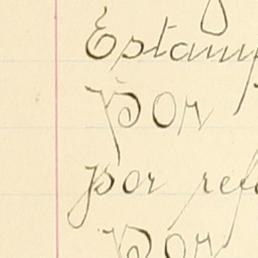 Estamp
Por
por refe
Por